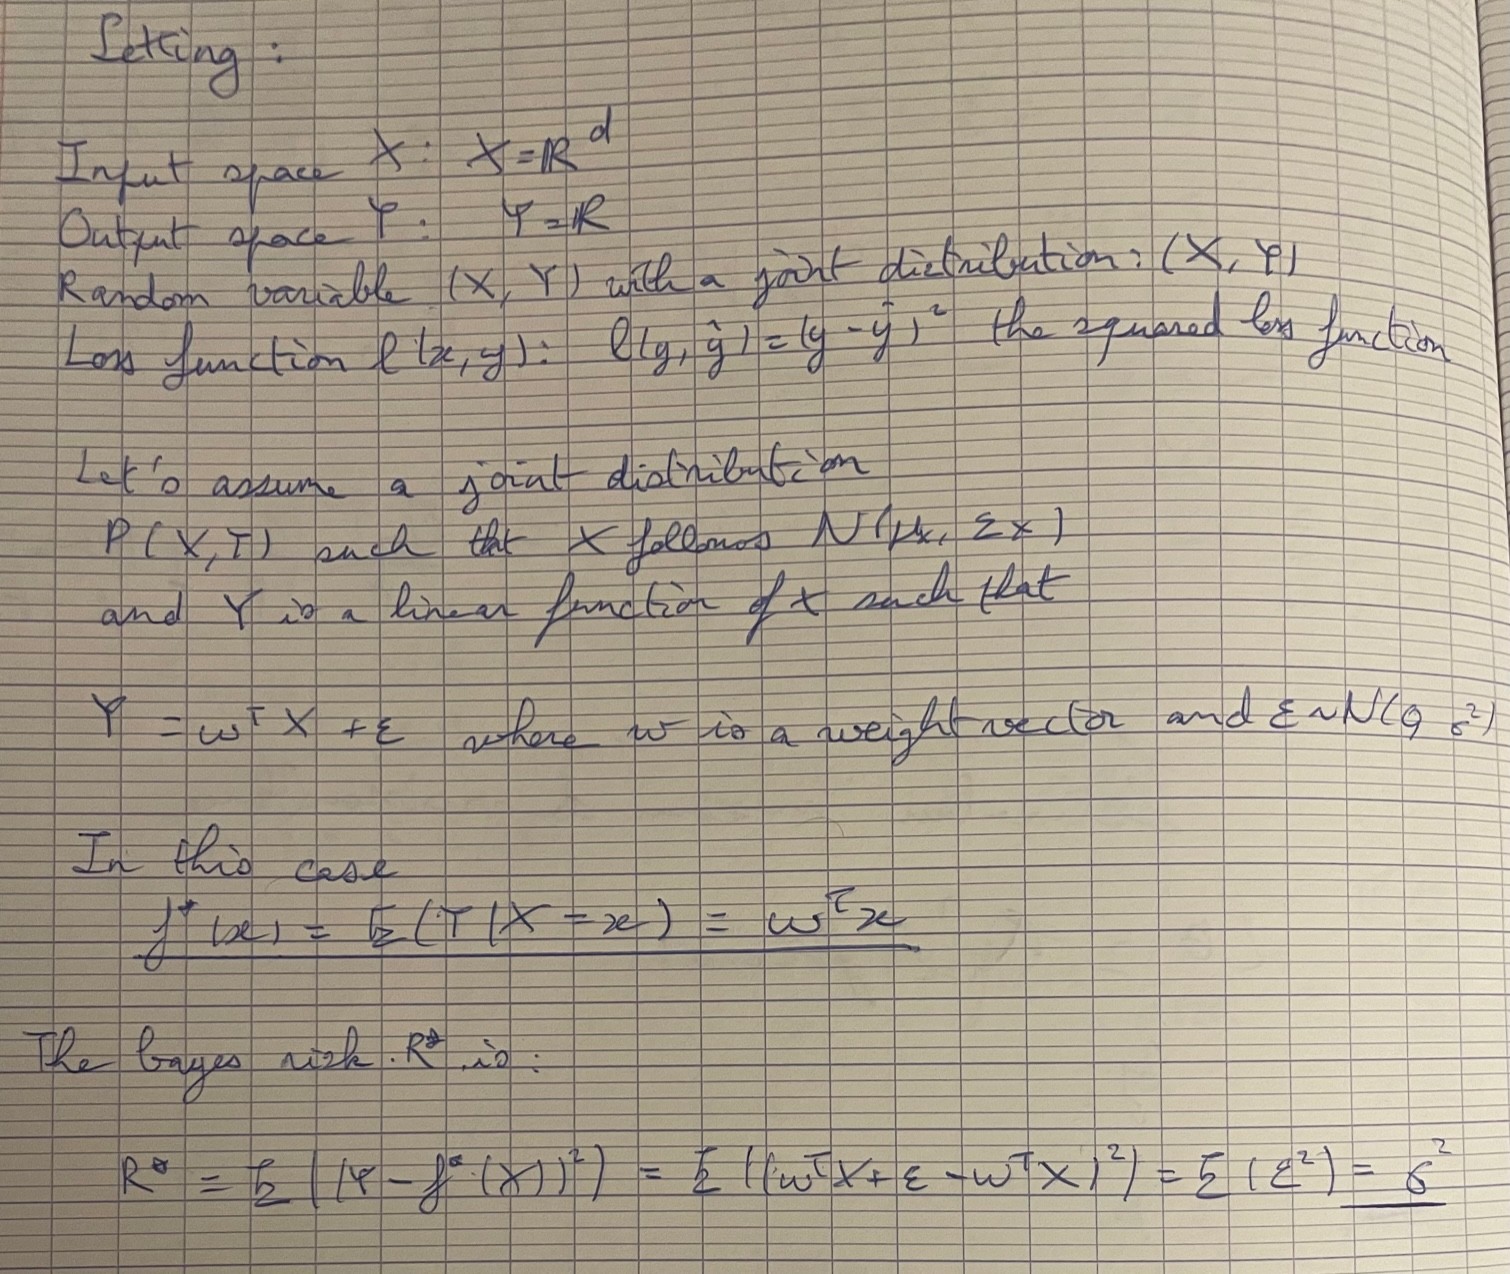 Setting :
Input space X : X = ℝ^d
Output space Y : Y = ℝ
Random variable (X, Y) with a joint distribution : (X, Y)
Loss function l(x, y) : l(y, ŷ) = (y - ŷ)² the squared loss function
Let's assume a joint distribution
P(X, Y) such that X follows N(μx, Σx)
and Y is a linear function of X such that
Y = w^T X + ε where w is a weight vector and ε ~ N(0, σ²)
In this case
f*(x) = E(Y | X = x) = w^T x
The bayes risk R* is :
R* = E((Y - f*(X))²) = E((w^T X + ε - w^T X)²) = E(ε²) = σ²